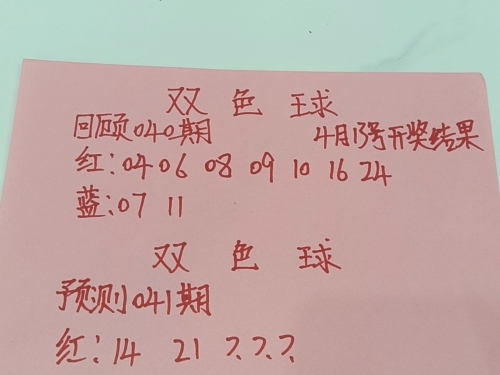 双色球
回顾040期 4月13号开奖结果
红:04 06 08 09 10 16 24
蓝:07 11
双色球
预测041期
红:14 21 ?.?.?.